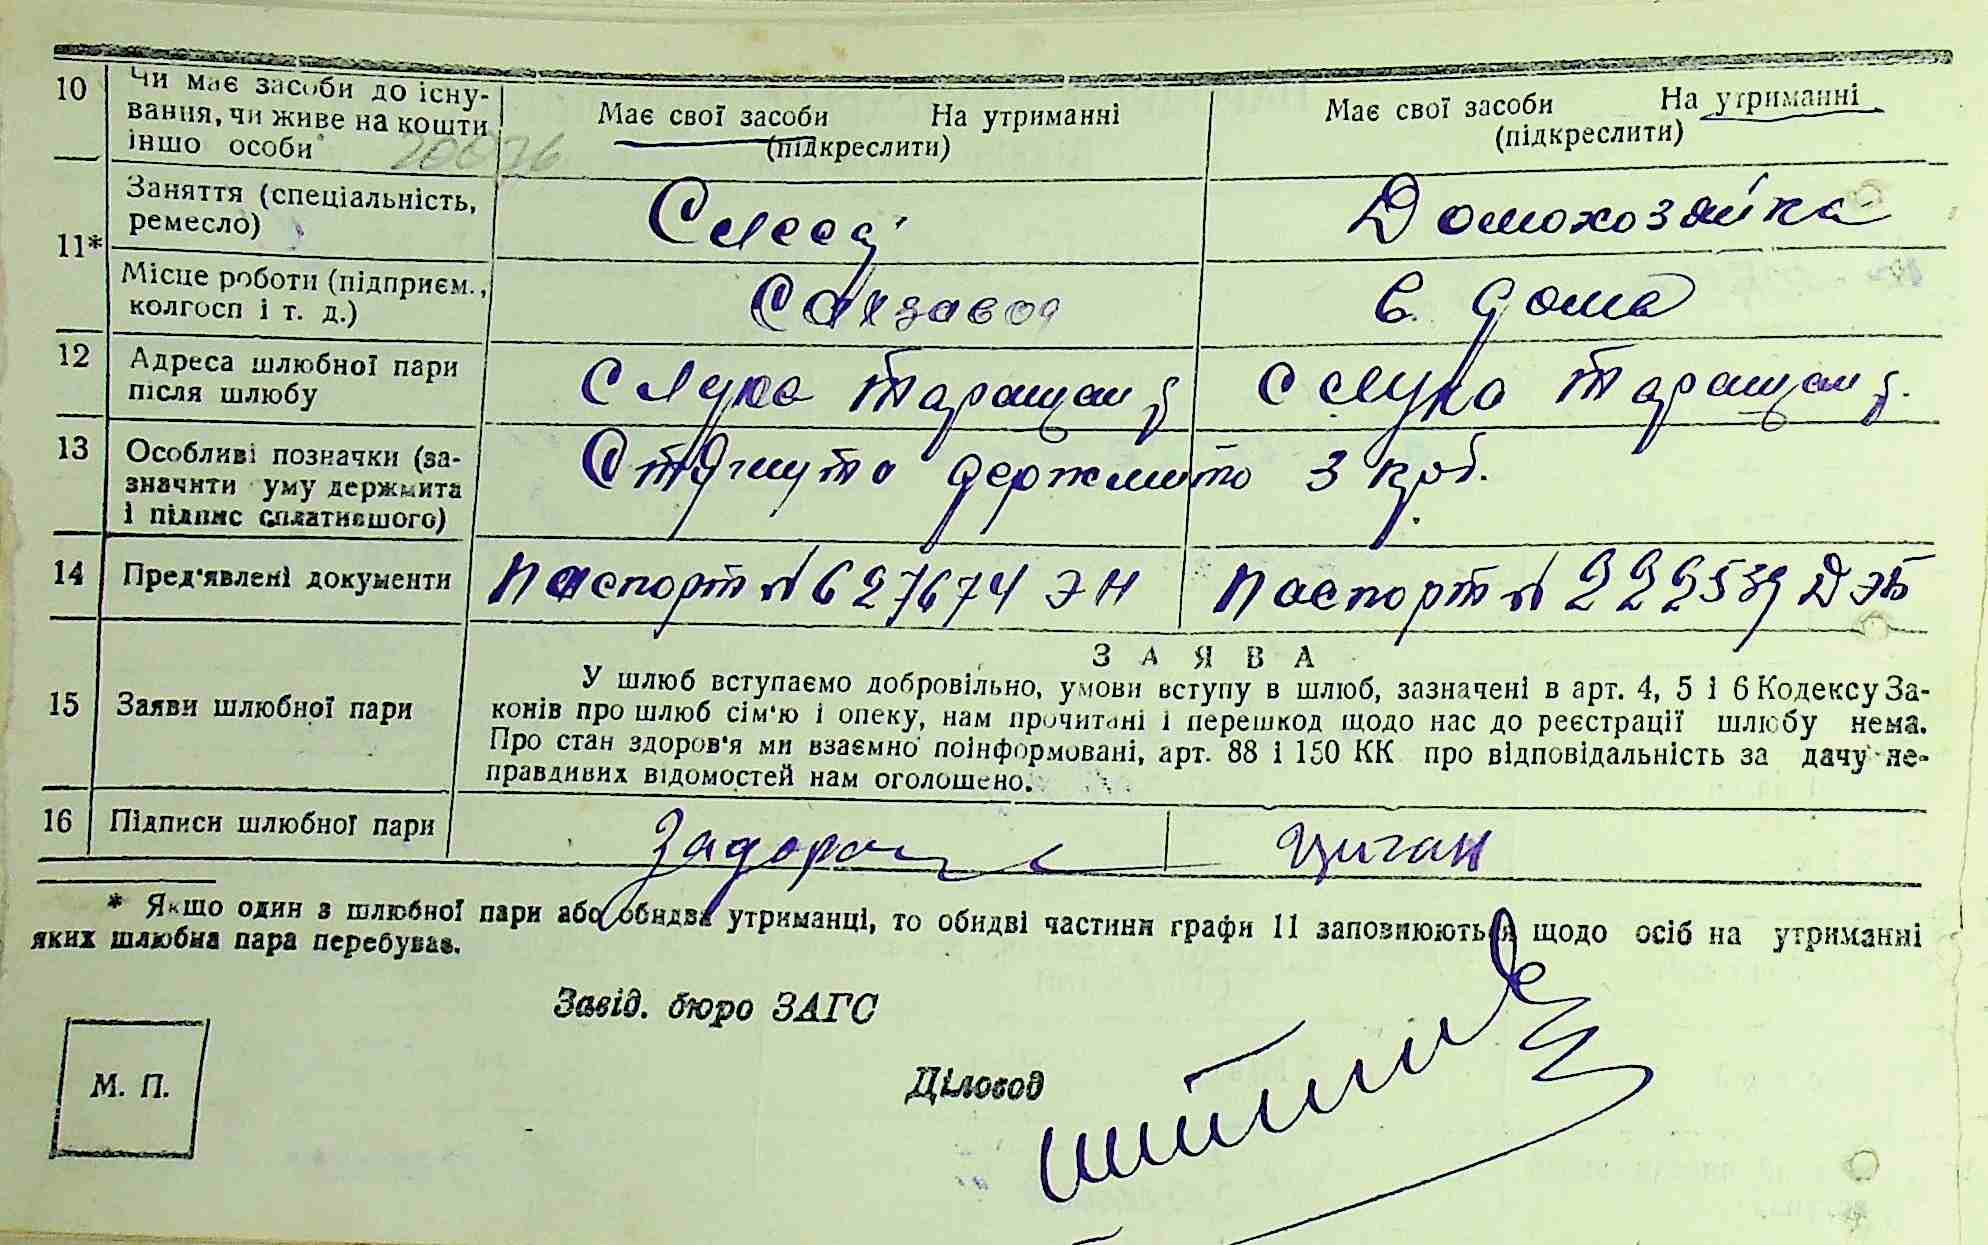 10 Чи має засоби до існу-
вання, чи живе на кошти
іншо особи
Має свої засоби На утриманні
(підкреслити)
Має свої засоби На утриманні
(підкреслити)
11* Заняття (спеціальність,
ремесло)
Домохозяйка
Місце роботи (підприєм.,
колгосп і т. д.)
Сахзавод
в дома
12 Адреса шлюбної пари
після шлюбу
с Лука Таращан
с Лука Таращан
13 Особливі позначки (за-
значити уму держмита
і підпис сплатившого)
Стягнуто держмито 3 крб.
14 Пред'явлені документи
Паспорт № 627674 ЭН
Паспорт № 222539 ДЭБ
15 Заяви шлюбної пари
З А Я В А
У шлюб вступаємо добровільно, умови вступу в шлюб, зазначені в арт. 4, 5 і 6 Кодексу За-
конів про шлюб сім'ю і опеку, нам прочитані і перешкод щодо нас до реєстрації шлюбу нема.
Про стан здоров'я ми взаємно поінформовані, арт. 88 і 150 КК про відповідальність за дачу не-
правдивих відомостей нам оголошено.
16 Підписи шлюбної пари
Циган
* Якщо один з шлюбної пари або обидва утриманці, то обидві частини графи 11 заповнюються щодо осіб на утриманні
яких шлюбна пара перебуває.
Завід. бюро ЗАГС
М. П.
Діловод